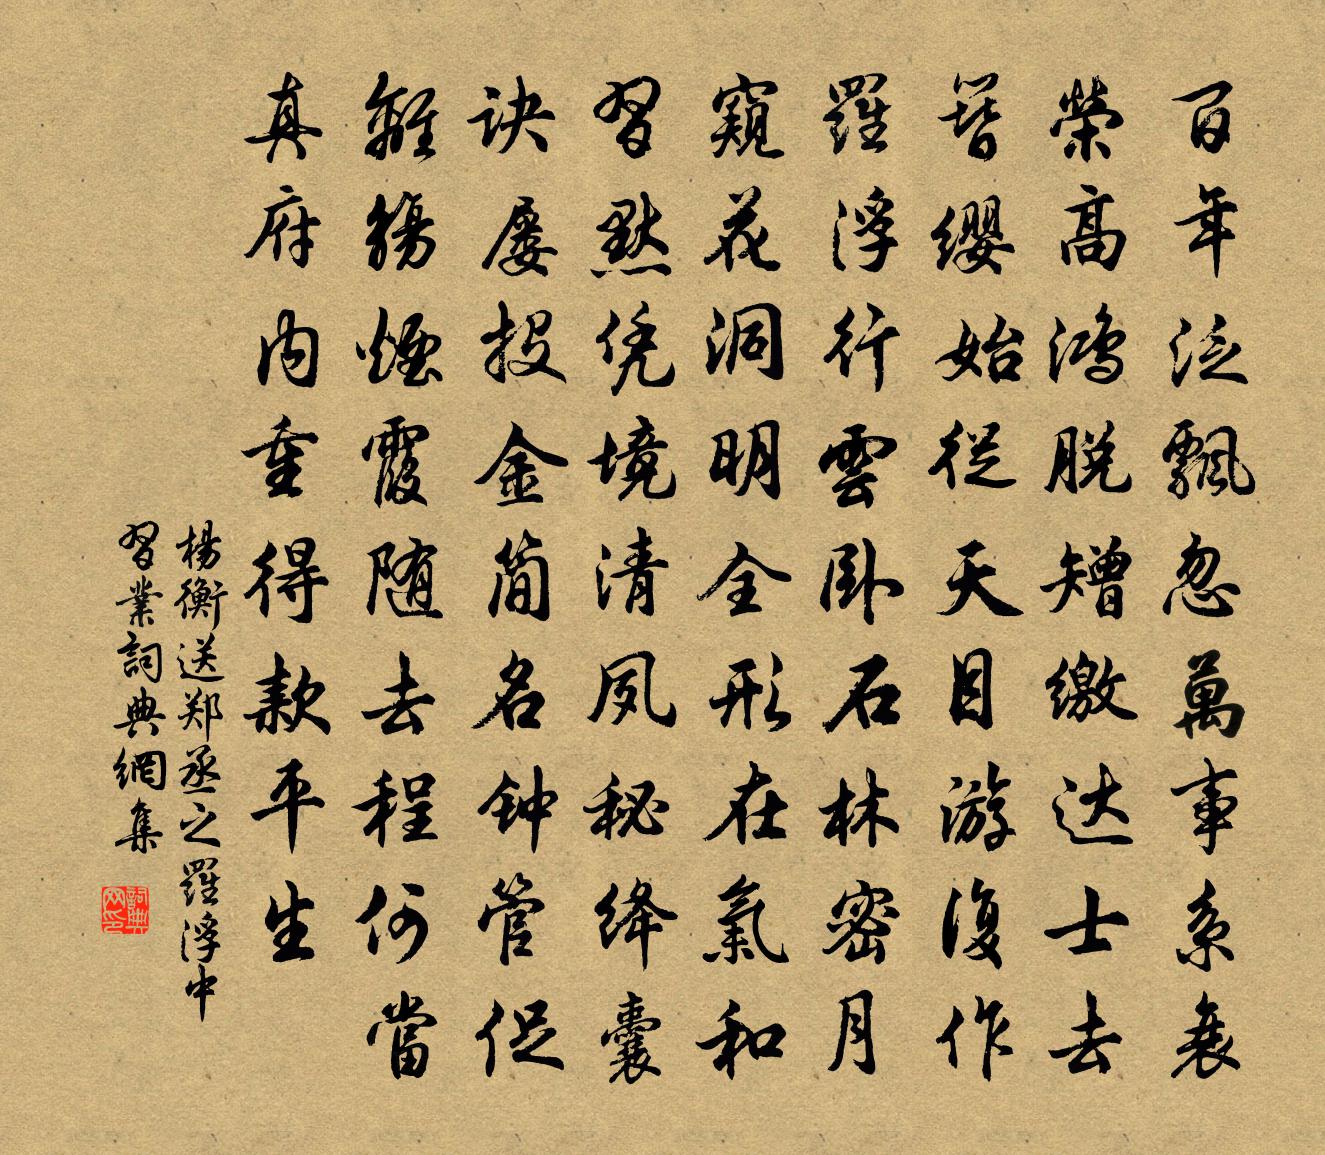 百年泛飄忽萬事系衰
榮高鴻脱矰缴达士去
簪缨始從天目游復作
羅浮行雲卧石林密月
窺花洞明全形在氣和
習默凭境清夙秘绛囊
诀屡投金简名钟管促
離觞煙霞随去程何當
真府内重得款平生
楊衡送郑丞之羅浮中
習業詞典網集
詞典网印